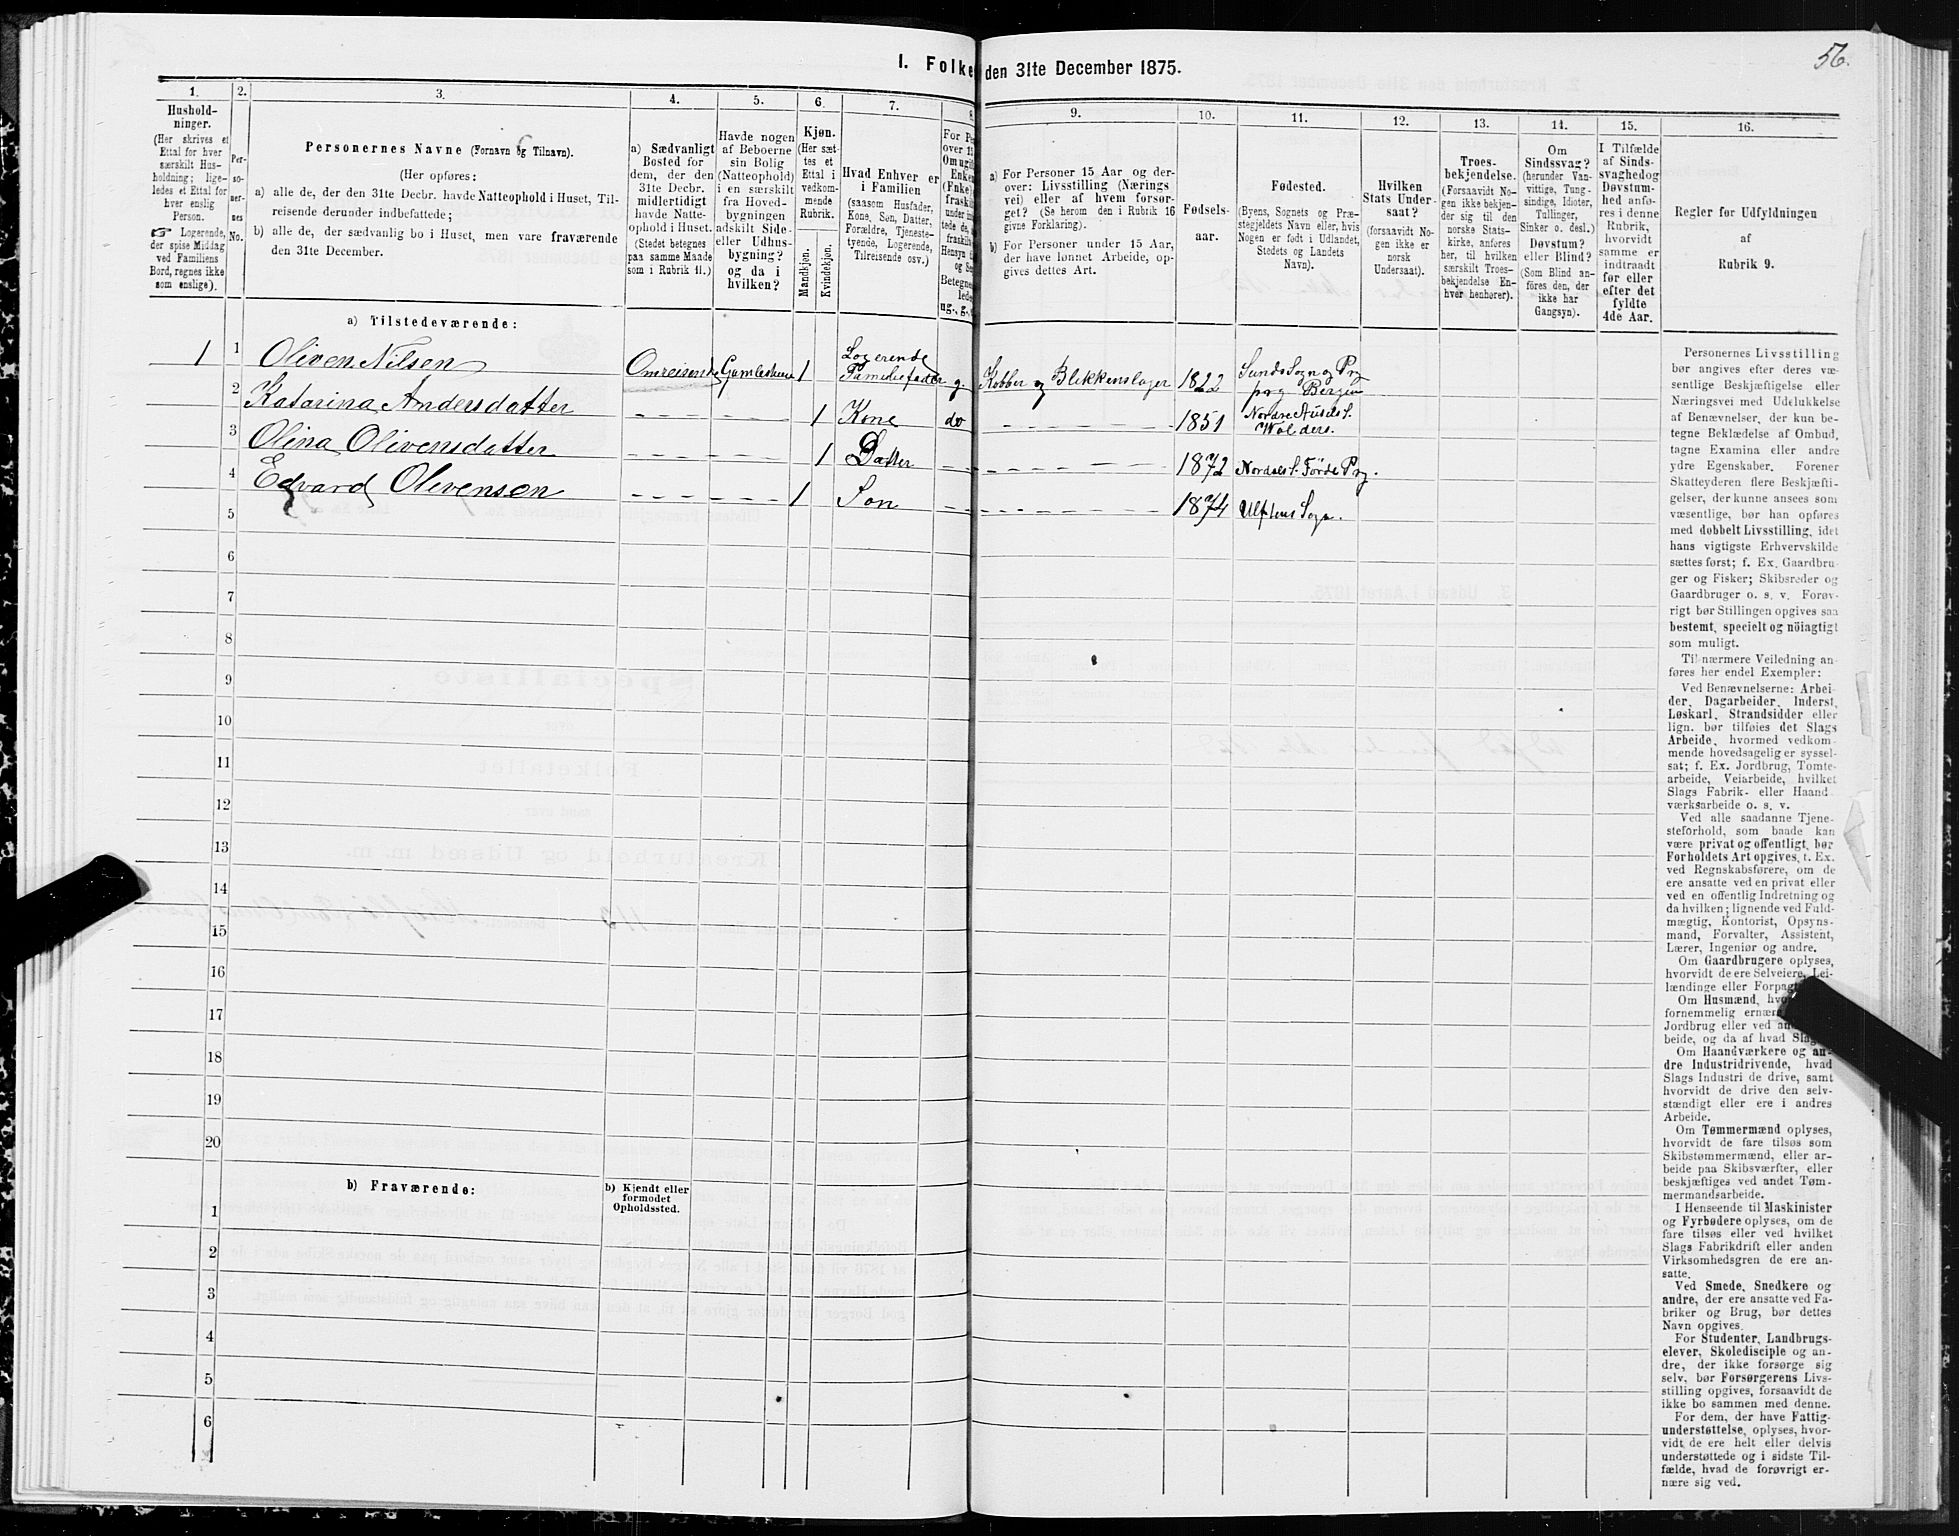 56.
I. Folke
den 31te December 1875.
1.
Hushold-
ninger.
(Her skrives et
Ettal for hver
særskilt Hus-
holdning; lige-
ledes et Ettal for
hver enslig
Person.
☞ Logerende,
der spise Middag
ved Familiens
Bord, regnes ikke
som enslige).
2.
Per-
so-
ner-
nes
No.
3.
Personernes Navne (Fornavn og Tilnavn).
(Her opføres:
a) alle de, der den 31te Decbr. havde Natteophold i Huset, Til-
reisende derunder indbefattede;
b) alle de, der sædvanlig bo i Huset, men vare fraværende
den 31te December.
4.
a) Sædvanligt
Bosted for
dem, der den
31te Decbr.
midlertidigt
havde Natte-
ophold i Huset.
(Stedet betegnes
paa samme Maade
som i Rubrik 11.)
5.
Havde nogen
af Beboerne
sin Bolig
(Natteophold)
i en særskilt
fra Hoved-
bygningen
adskilt Side-
eller Udhus-
bygning?
og da i
hvilken?
6.
Kjøn.
(Her sæt-
tes et
Ettal i
vedkom-
mende
Rubrik.
Mandkjøn.
Kvindekjøn.
7.
Hvad Enhver er
i Familien
(saasom Husfader,
Kone, Søn, Datter,
Forældre, Tjeneste-
tyende, Logerende,
Tilreisende osv.)
8.
9.
a) For Personer 15 Aar og der-
over: Livsstilling (Nærings
vei) eller af hvem forsør-
get? (Se herom den i Rubrik 16
givne Forklaring).
b) For Personer under 15 Aar,
der have lønnet Arbeide, op-
gives dettes Art.
10.
Fødsels-
aar.
11.
Fødested.
(Byens, Sognets og Præ-
stegjeldets Navn eller, hvis
Nogen er født i Udlandet,
Stedets og Landets
Navn).
12.
Hvilken
Stats Under-
saat?
(forsaavidt No-
gen ikke er
norsk
Undersaat).
13.
Troes-
bekjendelse.
(Forsaavidt No-
gen ikke bekjen-
der sig til den
norske Stats-
kirke, anføres
her, til hvilken
særskilt Troes-
bekjendelse En-
hver henhører).
14.
Om
Sindssvag?
(herunder Van-
vittige, Tung-
sindige, Idioter,
Tullinger,
Sinker o. desl.)
Døvstum?
eller Blind?
(Som Blind an-
føres den, der
ikke har
Gangsyn).
15.
I Tilfælde
af Sinds-
svaghed og
Døvstum-
hed anfø-
res i denne
Rubrik,
hvorvidt
samme er
indtraadt
før eller
efter det
fyldte
4de Aar.
16.
Regler for Udfyldningen
af
Rubrik 9.
a) Tilstedeværende:
1 1 Oliven Nilsen Omreisende 1 Logerende Familiefader g. Kobber og Blikkenslager 1822 Sunds Sogn og Prg
prg Bergen
2 Katarina Andersdatter 1 Kone do 1851 Nordre
3 Olina Olivensdatter 1 Datter 1872 Førde Prg.
4 Edvard Olivensen 1 Søn 1874 Sogn.
5
6
7
8
9
10
11
12
13
14
15
16
17
18
19
20
b) Fraværende:
b) Kjendt eller
formodet
Opholdssted.
1
2
3
4
5
6
Personernes Livsstilling
bør angives efter deres væ-
sentlige Beskjæftigelse eller
Næringsvei med Udelukkelse
af Benævnelser, der kun be-
tegne Beklædelse af Ombud,
tagne Examina eller andre
ydre Egenskaber. Forener
Skatteyderen flere Beskjæfti-
gelser, der kunne ansees som
væsentlige, bør han opføres
med dobbelt Livsstilling, idet
hans vigtigste Erhvervskilde
sættes først; f. Ex. Gaardbru-
ger og Fisker; Skibsreder og
Gaardbruger o. s. v. Forøv-
rigt bør Stillingen opgives saa
bestemt, specielt og nöiagtigt
som muligt.
Til nærmere Veiledning an-
føres her endel Exempler:
Ved Benævnelserne: Arbei-
der, Dagarbeider, Inderst,
Løskarl, Strandsidder eller
lign. bør tilføies det Slags
Arbeide, hvormed vedkom-
mende hovedsagelig er syssel-
sat; f. Ex. Jordbrug, Tomte-
arbeide, Veiarbeide, hvilket
Slags Fabrik- eller Haand
værksarbeide o. s. v.
Ved alle saadanne Tjene-
steforhold, som baade kan
være privat og offentligt, bør
Forholdets Art opgives, t. Ex.
ved Regnskabsførere, om de
ere ansatte ved en privat eller
ved en offentlig Indretning og
da hvilken; lignende ved Fuld-
mægtig, Kontorist, Opsyns-
mand, Forvalter, Assistent,
Lærer, Ingeniør og andre.
Om Gaardbrugere oplyses,
hvorvidt de ere Selveiere, Lei-
lændinge eller
Om Husmænd,
fornemmelig
Jordbrug eller ved
beide, og da af hvad
Om Haandværkere og an-
dre Industridrivende, hvad
Slags Industri de drive, samt
hvorvidt de drive den selv-
stændigt eller ere i andres
Arbeide.
Om Tømmermænd oplyses,
hvorvidt de fare tilsøs som
Skibstømmermænd, eller ar-
beide paa Skibsværfter, eller
beskjæftiges ved andet Tøm-
mermandsarbeide.
I Henseende til Maskinister
og Fyrbødere oplyses, om de
fare tilsøs eller ved hvilket
Slags Fabrikdrift eller anden
Virksomhedsgren de ere an-
satte.
Ved Smede, Snedkere og
andre, der ere ansatte ved Fa-
briker og Brug, bør dettes
Navn opgives.
For Studenter, Landbrugs-
elever, Skoledisciple og an-
dre, der ikke forsørge sig
selv, bør Forsørgerens Livs-
stilling opgives, forsaavidt de
ikke bo sammen med denne.
For dem, der have Fattig-
understøttelse, oplyses, hvor-
vidt de ere helt eller delvis
understøttede og i sidste Til-
fælde, hvad de forøvrigt er-
nære sig ved.